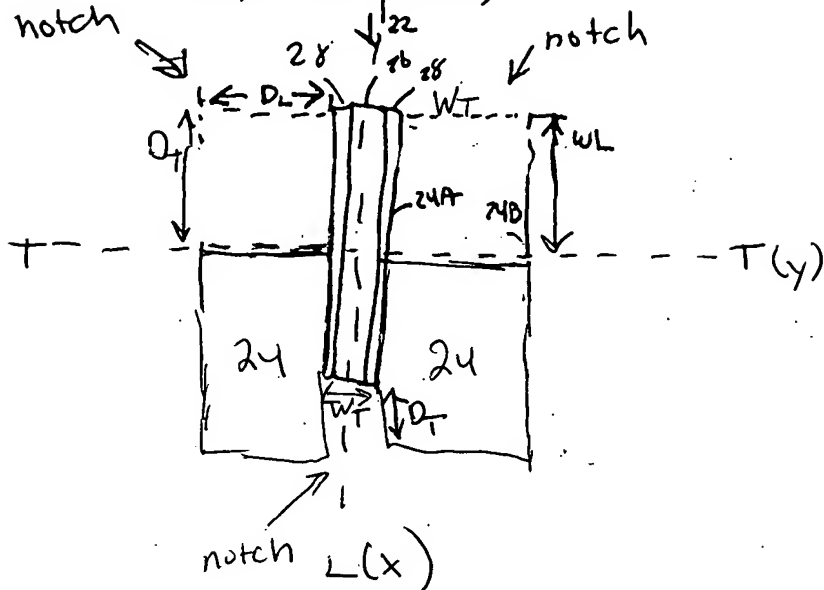 22
notch
notch
28 26 28
DL
WT
DT
WL
24A
24B
T T(y)
24 24
WT
DT
notch L(x)